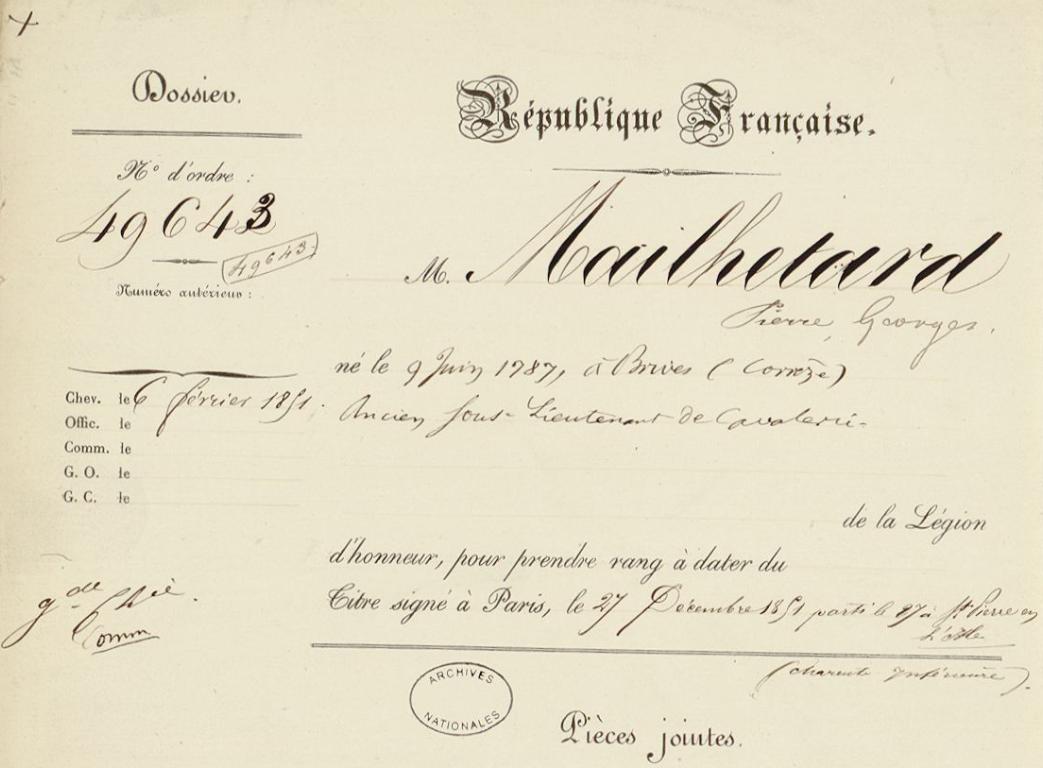 Dossier.
République Française.
N° d'ordre :
49643
49643
Numéro antérieur :
M. Mailhetard
Pierre, Georges.
né le 9 Juin 1787, à Brives (Corrèze)
Chev. le 6 février 1851.
Ancien Sous-Lieutenant de Cavalerie.
Offic. le
Comm. le
G. O. le
G. C. le
de la Légion
d'honneur, pour prendre rang à dater du
gde Chie.
Comm
Titre signé à Paris, le 27 Décembre 1851 parti le 27 à St Pierre en
L'Isle
(Charente Inférieure).
ARCHIVES
NATIONALES
Pièces jointes.